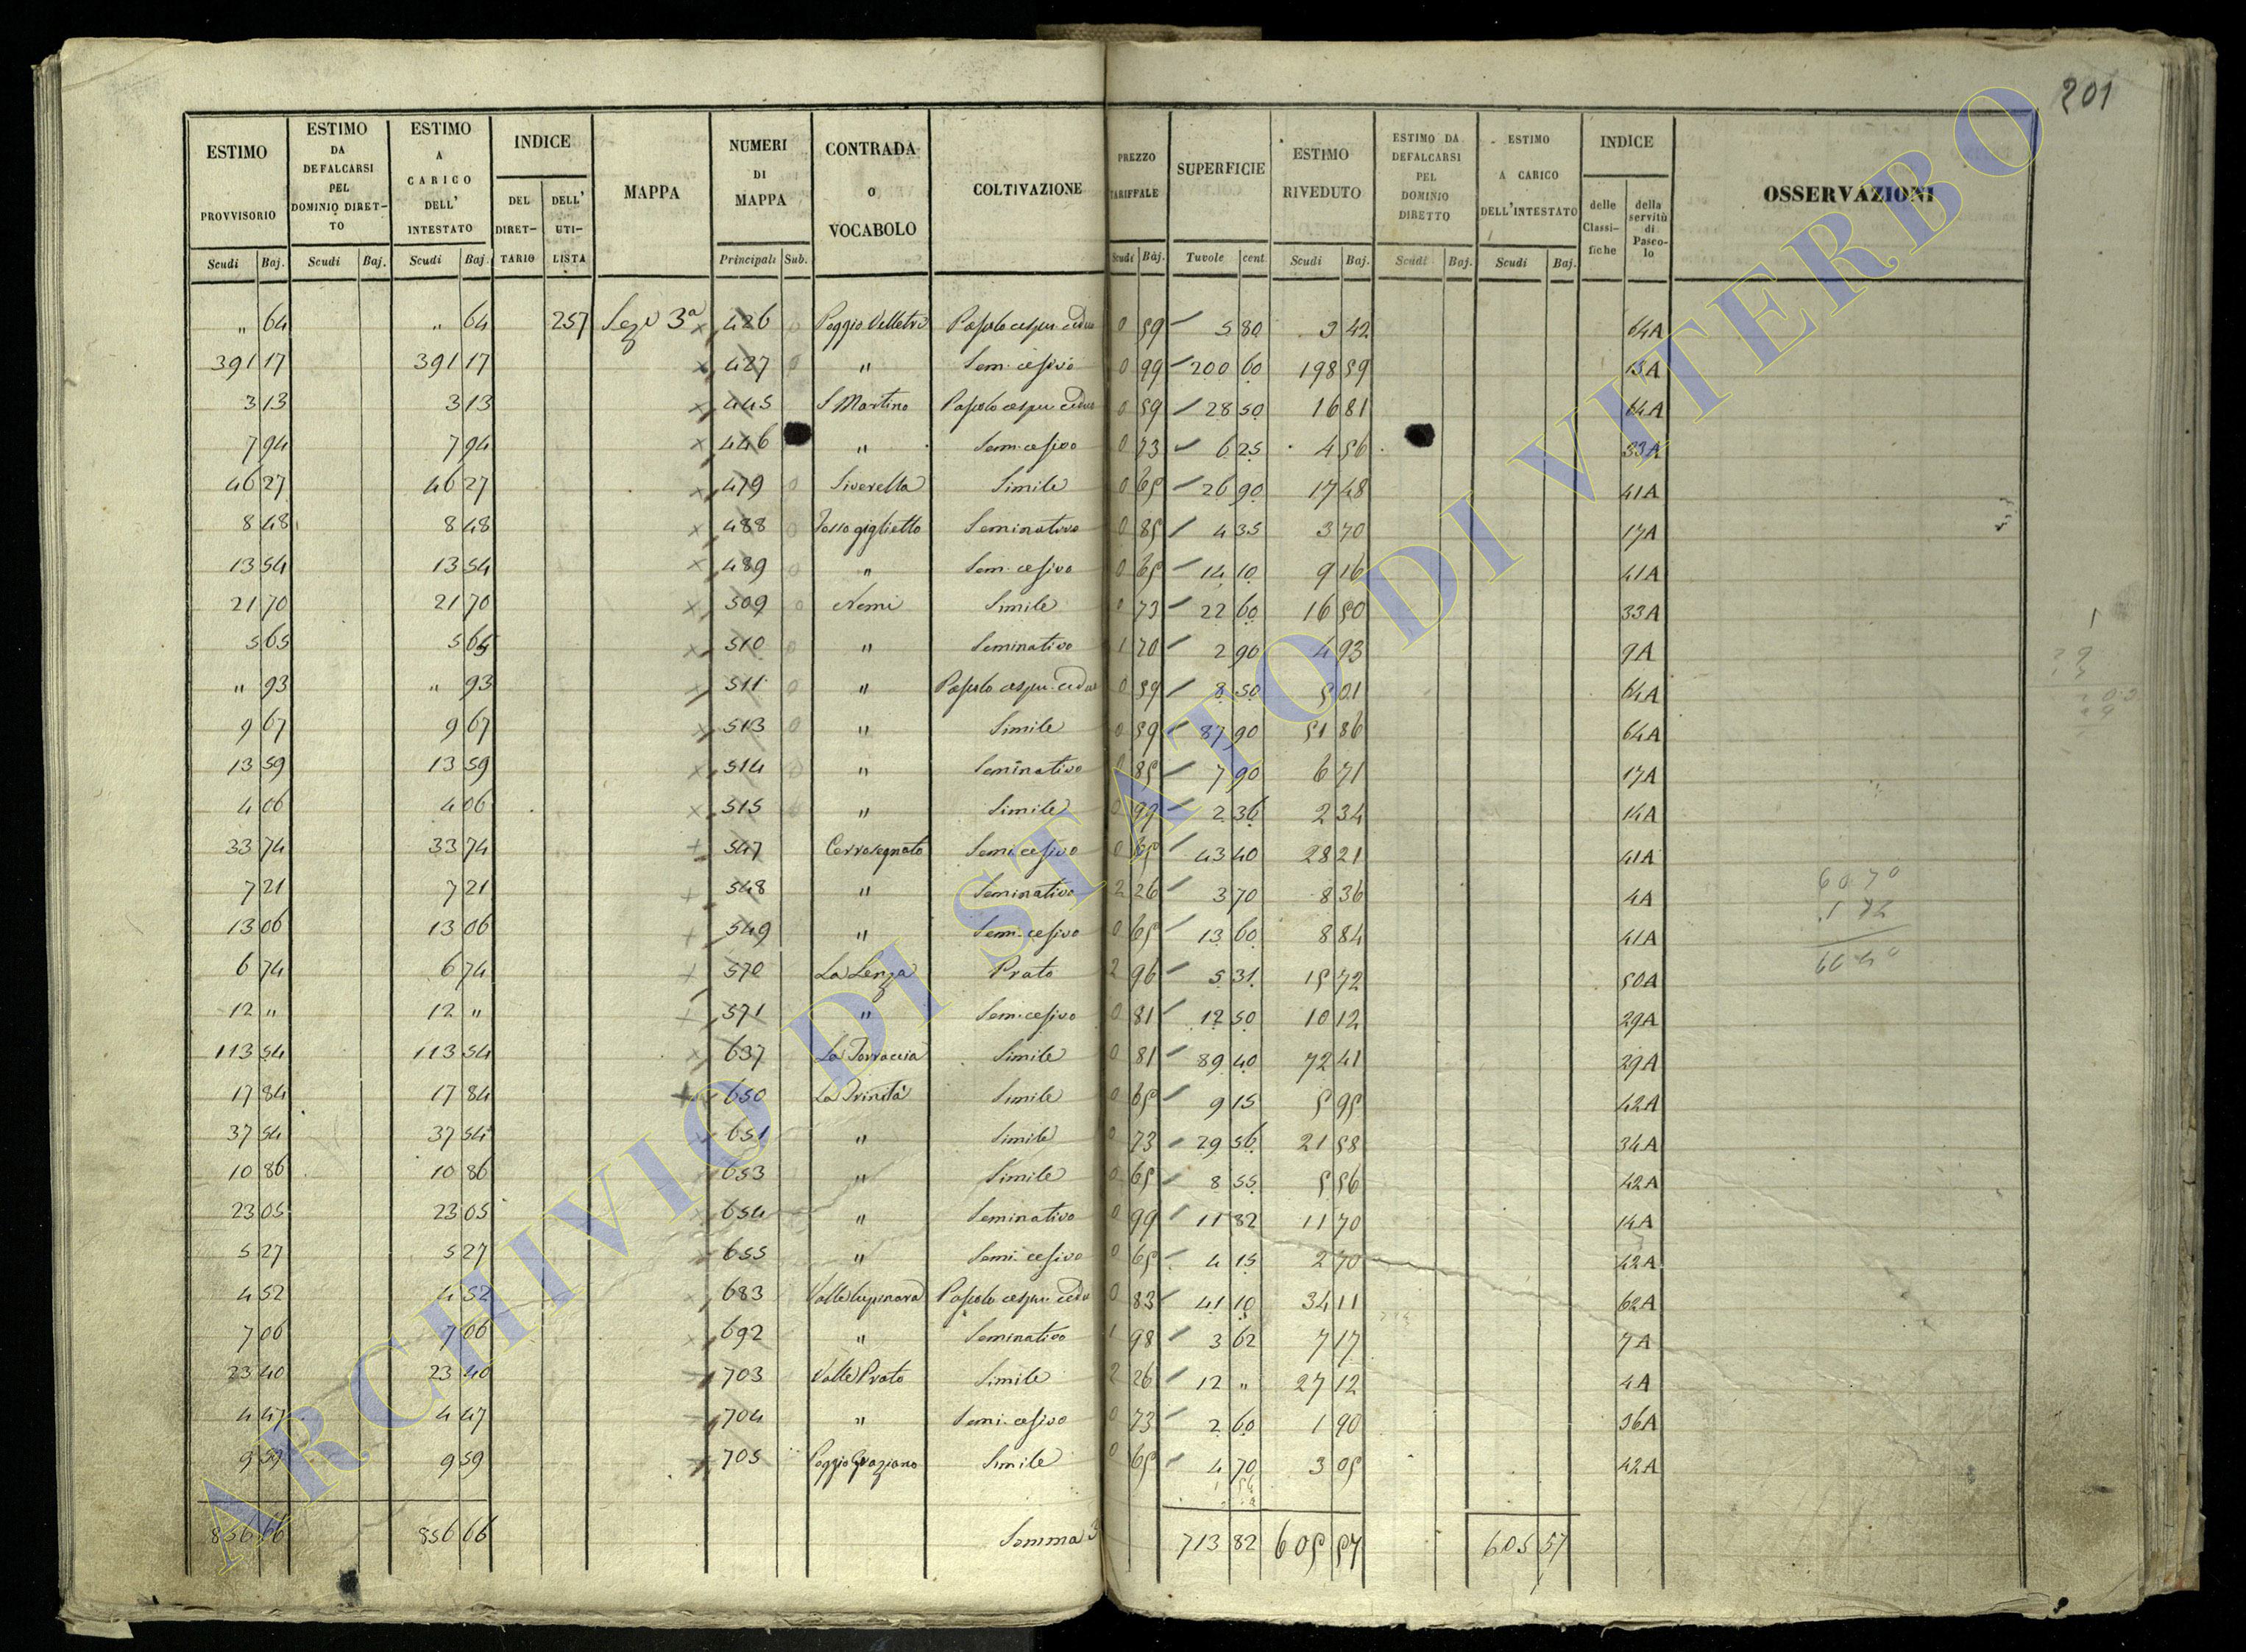 201
ESTIMO PROVVISORIO
ESTIMO DA DEFALCARSI PEL DOMINIO DIRET-TO
ESTIMO A CARICO DELL' INTESTATO
INDICE
DEL DIRET-TARIO
DELL' UTI-LISTA
MAPPA
NUMERI DI MAPPA
CONTRADA o VOCABOLO
COLTIVAZIONE
PREZZO TARIFFALE
SUPERFICIE
ESTIMO RIVEDUTO
ESTIMO DA DEFALCARSI PEL DOMINIO DIRETTO
ESTIMO A CARICO DELL'INTESTATO
INDICE
delle Classi-fiche
della servitù di Pasco-lo
OSSERVAZIONI
Scudi Baj. Scudi Baj. Scudi Baj. Principali Sub. Scudi Baj. Tavole cent Scudi Baj. Scudi Baj. Scudi Baj.
" 64 " 64 257 Sez 3a 426 0 Poggio Velletri Pascolo cespu. ceduo 0 59 5 80 3 42 64A
391 17 391 17 427 0 " Sem. cesivo 0 99 200 60 198 59 15A
3 13 3 13 445 S Martino Pascolo cespu ceduo 0 59 28 50 16 81 64A
7 94 7 94 446 " Sem. cesivo 0 73 6 25 4 56 33A
46 27 46 27 479 0 Siverella Simile 0 65 26 90 17 48 41A
8 48 8 48 488 0 Fosso giglietto Seminativo 0 85 4 35 3 70 17A
13 54 13 54 489 0 " Sem. cesivo 0 65 14 10 9 16 41A
21 70 21 70 509 0 Nemi Simile 0 73 22 60 16 50 33A
5 65 5 65 510 0 " Seminativo 1 70 2 90 4 93 9A
" 93 " 93 511 0 " Pascolo cespu. ceduo 0 59 8 50 5 01 64A
9 67 9 67 513 0 " Simile 0 59 87 90 51 86 64A
13 59 13 59 514 0 " Seminativo 0 85 7 90 6 71 17A
4 06 4 06 515 0 " Simile 0 99 2 36 2 34 14A
33 74 33 74 547 Cerrosegnato Semi cesivo 0 65 43 40 28 21 41A
7 21 7 21 548 " Seminativo 2 26 3 70 8 36 4A
13 06 13 06 549 " Semi. cesivo 0 65 13 60 8 84 41A
6 74 6 74 570 La Lenza Prato 2 96 5 31 15 72 50A
12 " 12 " 571 " Sem. cesivo 0 81 12 50 10 12 29A
113 54 113 54 637 La Torraccia Simile 0 81 89 40 72 41 29A
17 84 17 84 650 La Trinità Simile 0 65 9 15 5 95 42A
37 54 37 54 651 " Simile 0 73 29 56 21 58 34A
10 86 10 86 653 " Simile 0 65 8 55 5 56 42A
23 05 23 05 654 " Seminativo 0 99 11 82 11 70 14A
5 27 5 27 655 " Semi. cesivo 0 65 4 15 2 70 42A
4 52 4 52 683 Valle lupinara Pascolo cespu ceduo 0 83 41 10 34 11 62A
7 06 7 06 692 " Seminativo 1 98 3 62 7 17 7A
23 40 23 40 703 Valle Prato Simile 2 26 12 " 27 12 4A
4 47 4 47 704 " Semi. cesivo 0 73 2 60 1 90 36A
9 59 9 59 705 Poggio Graziano Simile 0 65 4 70 3 05 42A
856 66 856 66 Somma 713 82 605 57 605 57
ARCHIVIO DI STATO DI VITERBO